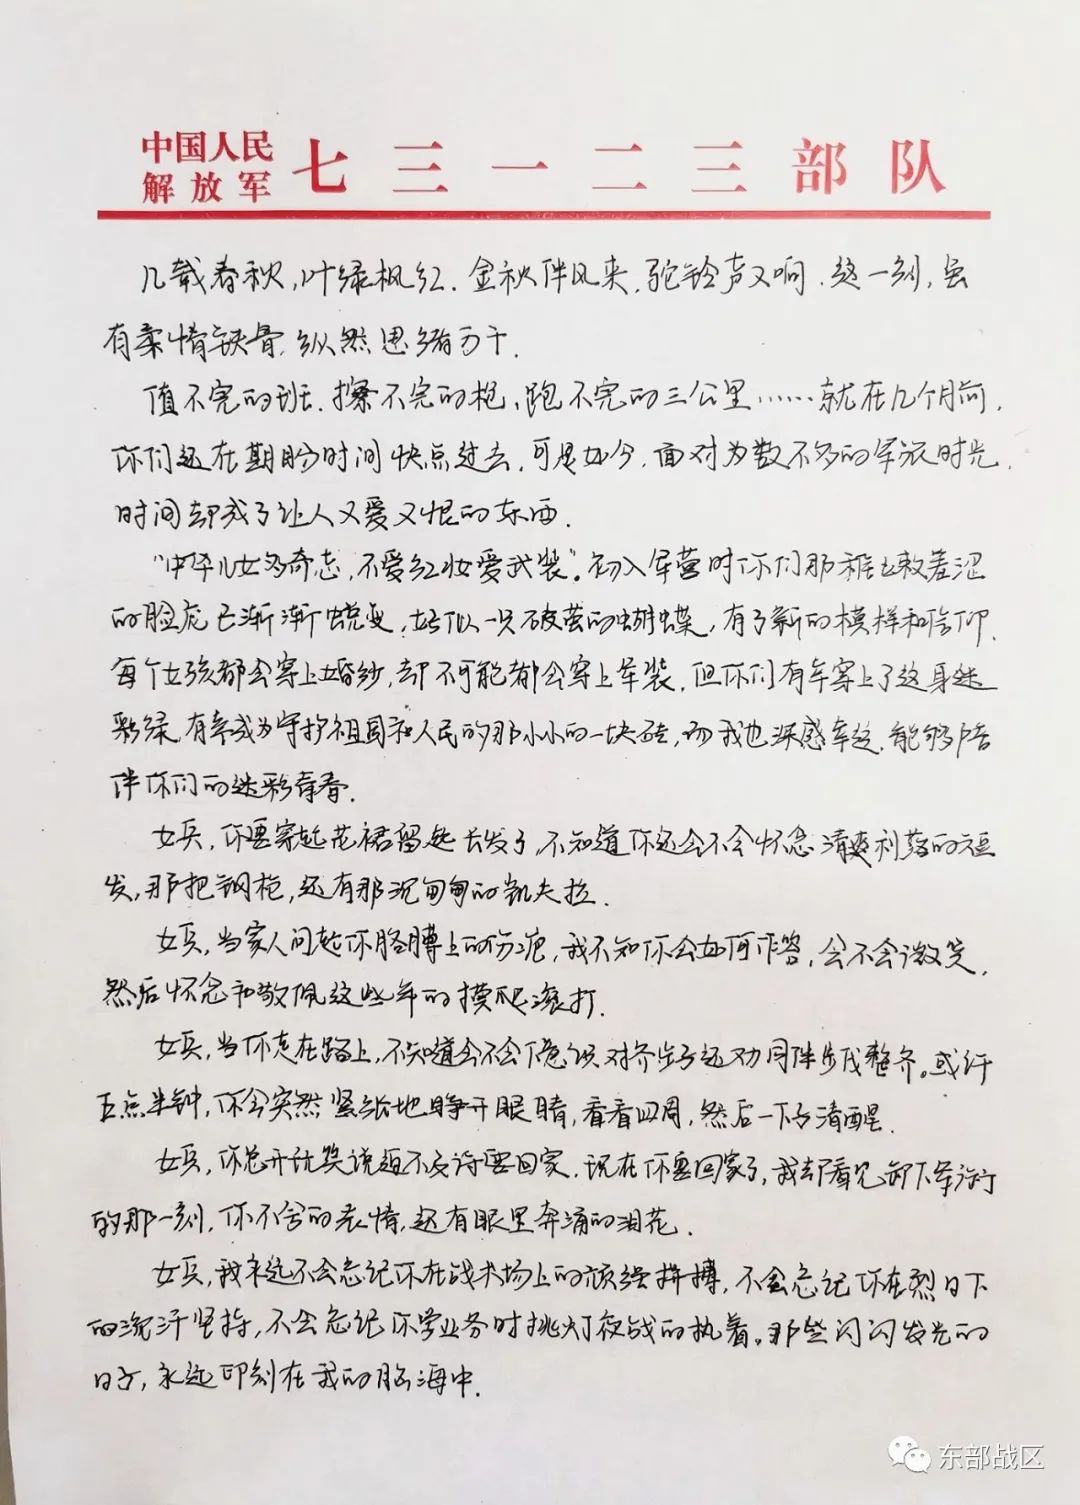 中国人民
解放军 七三一二三部队
几载春秋,叶绿枫红.金秋伴风来,驼铃声又响.这一刻,虽
有柔情铁骨,纵然思绪万千.
值不完的班、擦不完的枪、跑不完的三公里……就在几个月前,
你们还在期盼时间快点过去,可是如今,面对为数不多的军旅时光,
时间却成了让人又爱又恨的东西.
"中华儿女多奇志,不爱红妆爱武装"。初入军营时你们那稚嫩羞涩
的脸庞已渐渐蜕变,好似一只破茧的蝴蝶,有了新的模样和信仰.
每个女孩都会穿上婚纱,却不可能都会穿上军装,但你们有幸穿上了这身迷
彩绿,有幸成为守护祖国和人民的那小小的一块砖,而我也深感幸运,能够陪
伴你们的迷彩青春.
女兵,你要穿起花裙留起长发了,不知道你还会不会怀念清爽利落的短
发,那把钢枪,还有那沉甸甸的凯夫拉.
女兵,当家人问起你胳膊上的伤疤,我不知你会如何作答,会不会微笑,
然后怀念和敬佩这些年的摸爬滚打.
女兵,当你走在路上,不知道会不会下意识对齐步子还劝同伴步伐整齐。或许
五点半钟,你会突然紧张地睁开眼睛,看看四周,然后一下子清醒.
女兵,你总开玩笑说迫不及待要回家,现在你要回家了,我却看见卸下军衔
的那一刻,你不舍的表情,还有眼里奔涌的泪花.
女兵,我永远不会忘记你在战术场上的顽强拼搏,不会忘记你在烈日下
的流汗坚持,不会忘记你学业务时挑灯夜战的执着。那些闪闪发光的
日子,永远印刻在我的脑海中.
东部战区